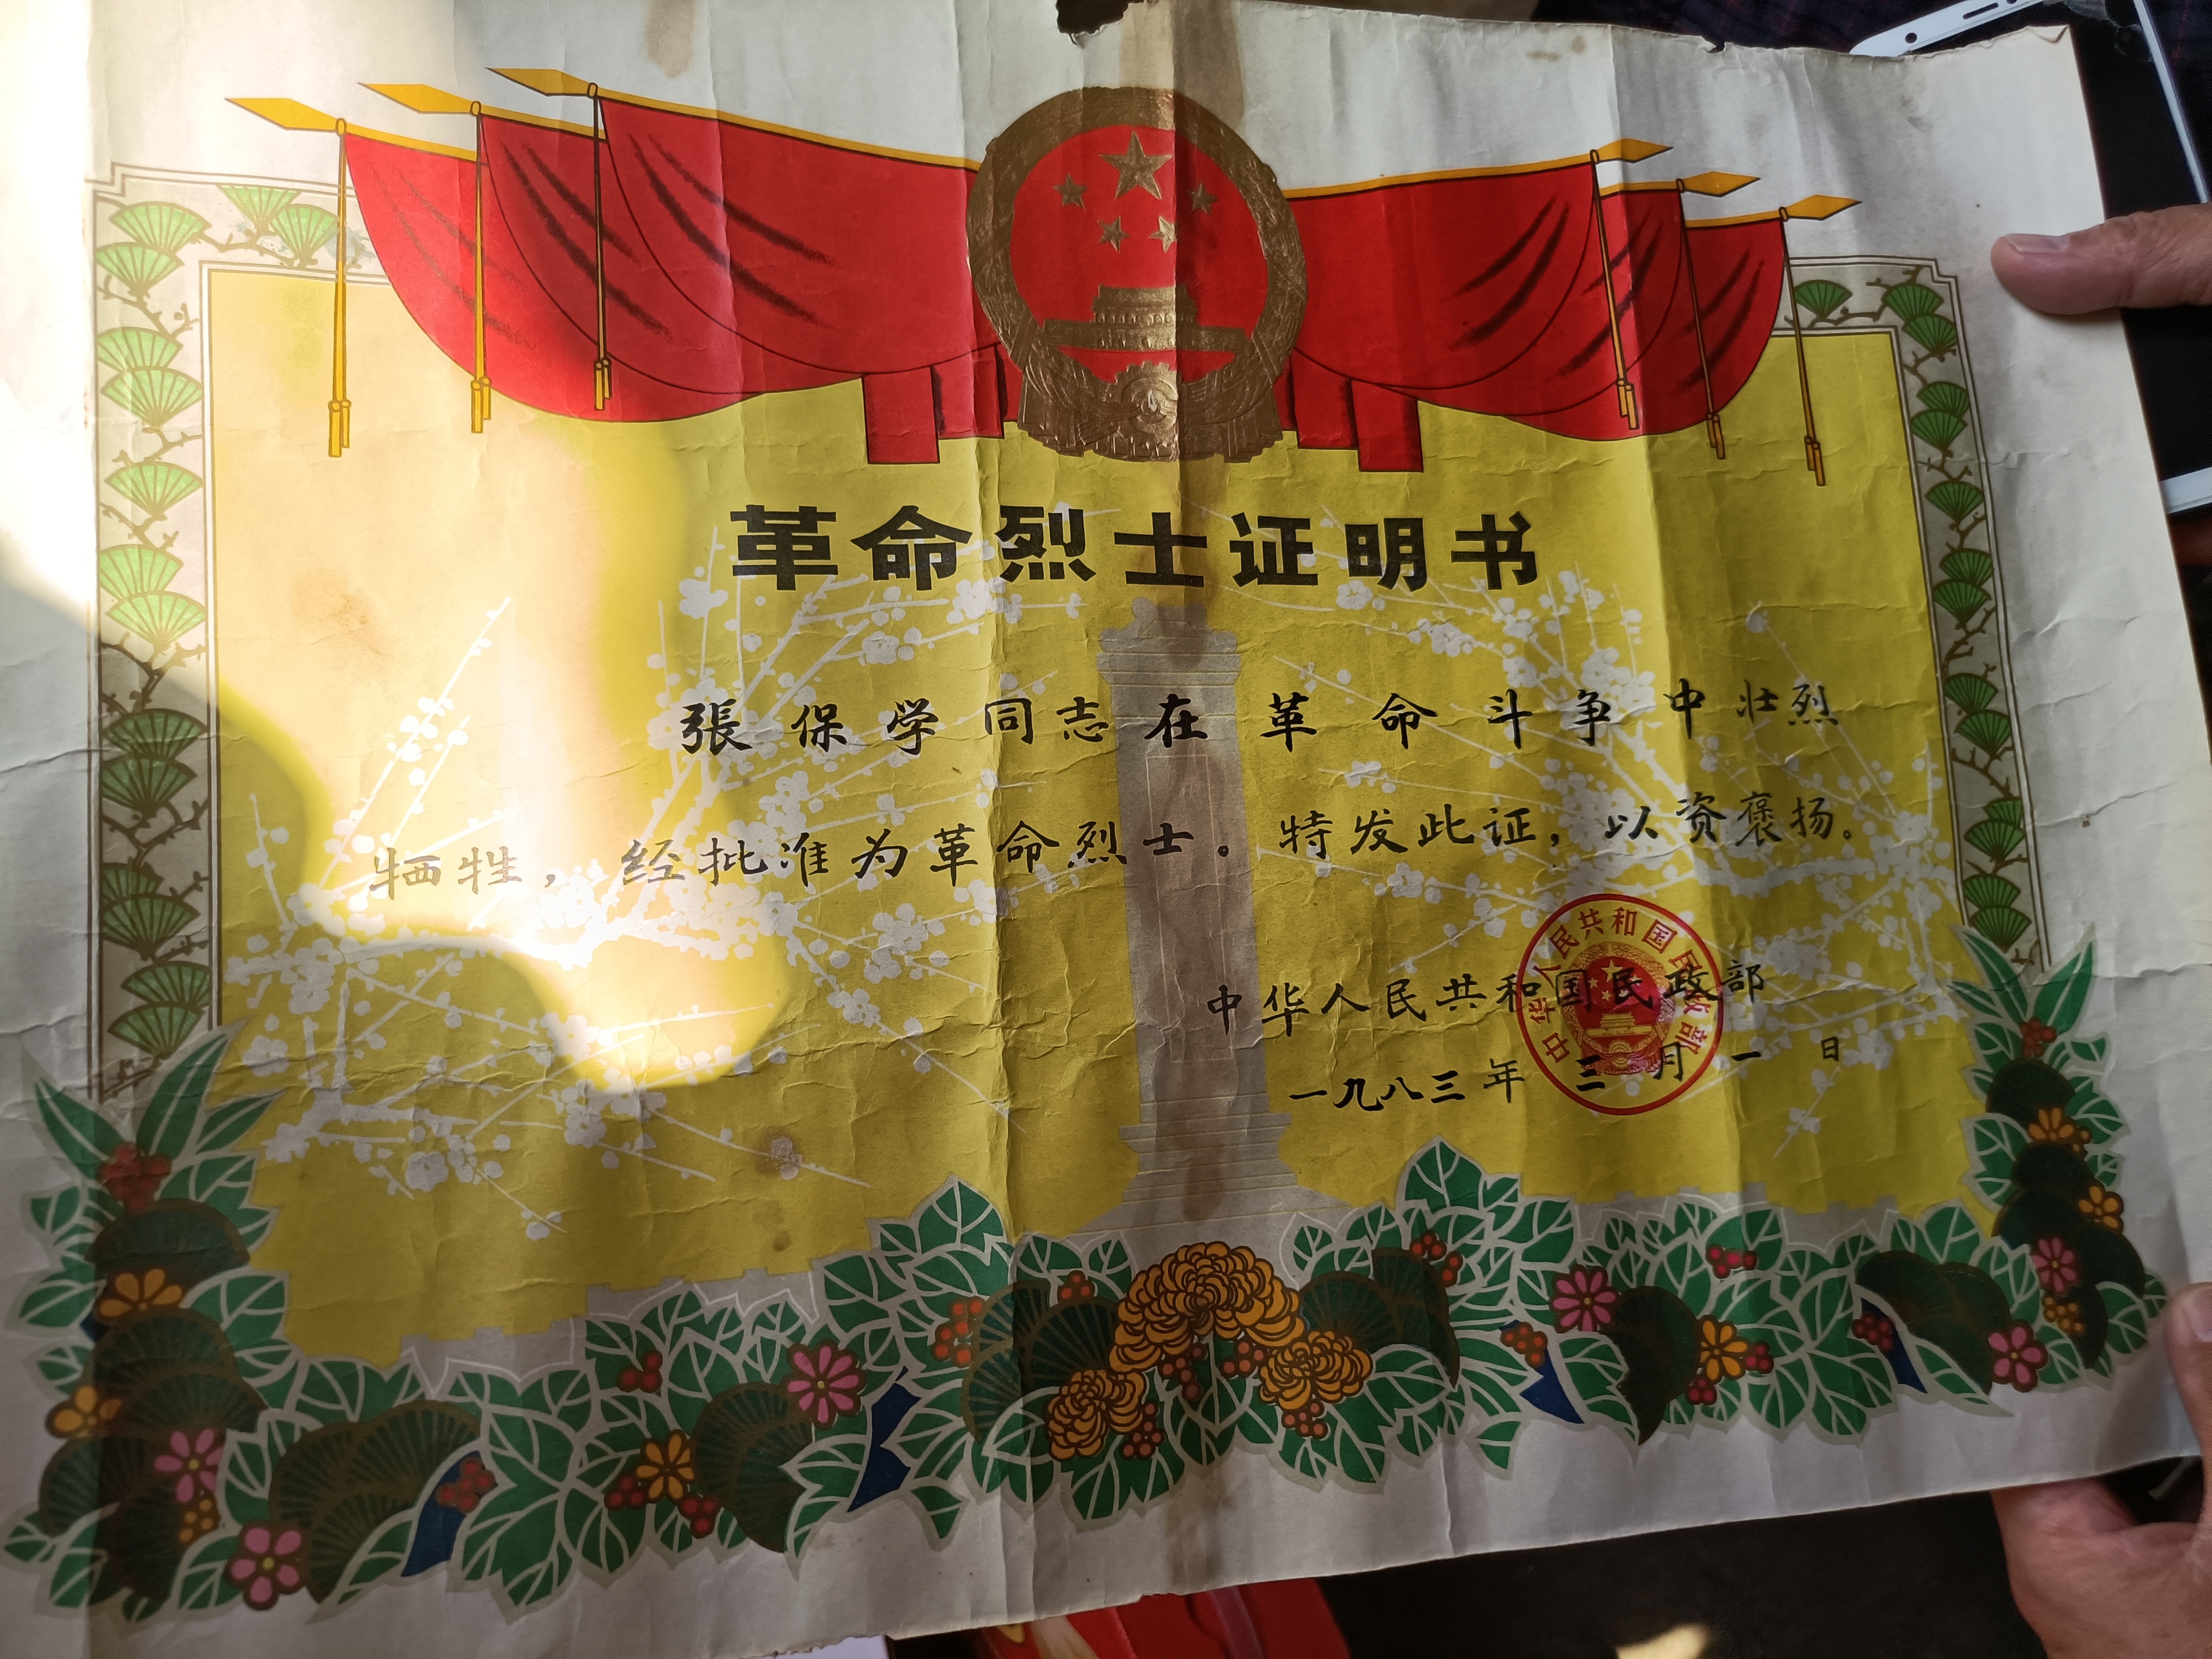 革命烈士证明书
張保学同志在革命斗争中壮烈
牺牲，经批准为革命烈士。特发此证，以资褒扬。
中华人民共和国民政部
一九八三年三月一日
中华人民共和国民政部